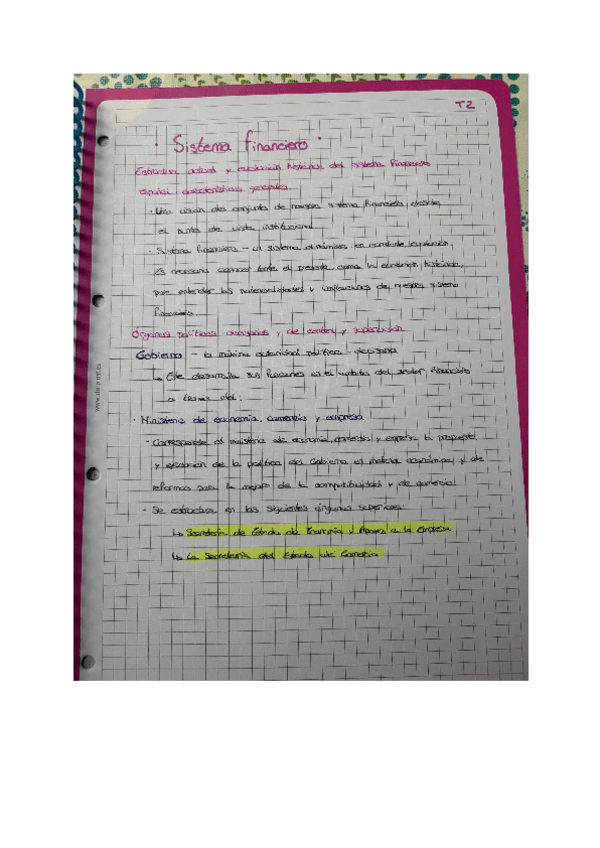 T2
· Sistema financiero ·
Estructura actual y evolución histórica del sistema financiero
español: características generales
· Una visión de conjunto de nuestro sistema financiero, desde
el punto de vista institucional
· Sistema financiero – un sistema dinámico en constante evolución,
· Es necesario conocer tanto el presente como la evolución histórica,
para entender las potencialidades y limitaciones del nuestro sistema
financiero.
Órganos políticos decisorios y de control y supervisión
Gobierno – la máxima autoridad política decisoria
↳ Este desarrolla sus funciones en el ámbito del sector financiero
a través del:
· Ministerio de economía, comercio y empresa
· Corresponde al ministerio de economía, comercio y empresa la propuesta
y ejecución de la política del Gobierno en materia económica y de
reformas para la mejora de la competitividad y de comercial
· Se estructura en los siguientes órganos superiores:
↳ Secretaría de Estado de Economía y Apoyo a la Empresa
↳ La Secretaría del Estado de Comercio